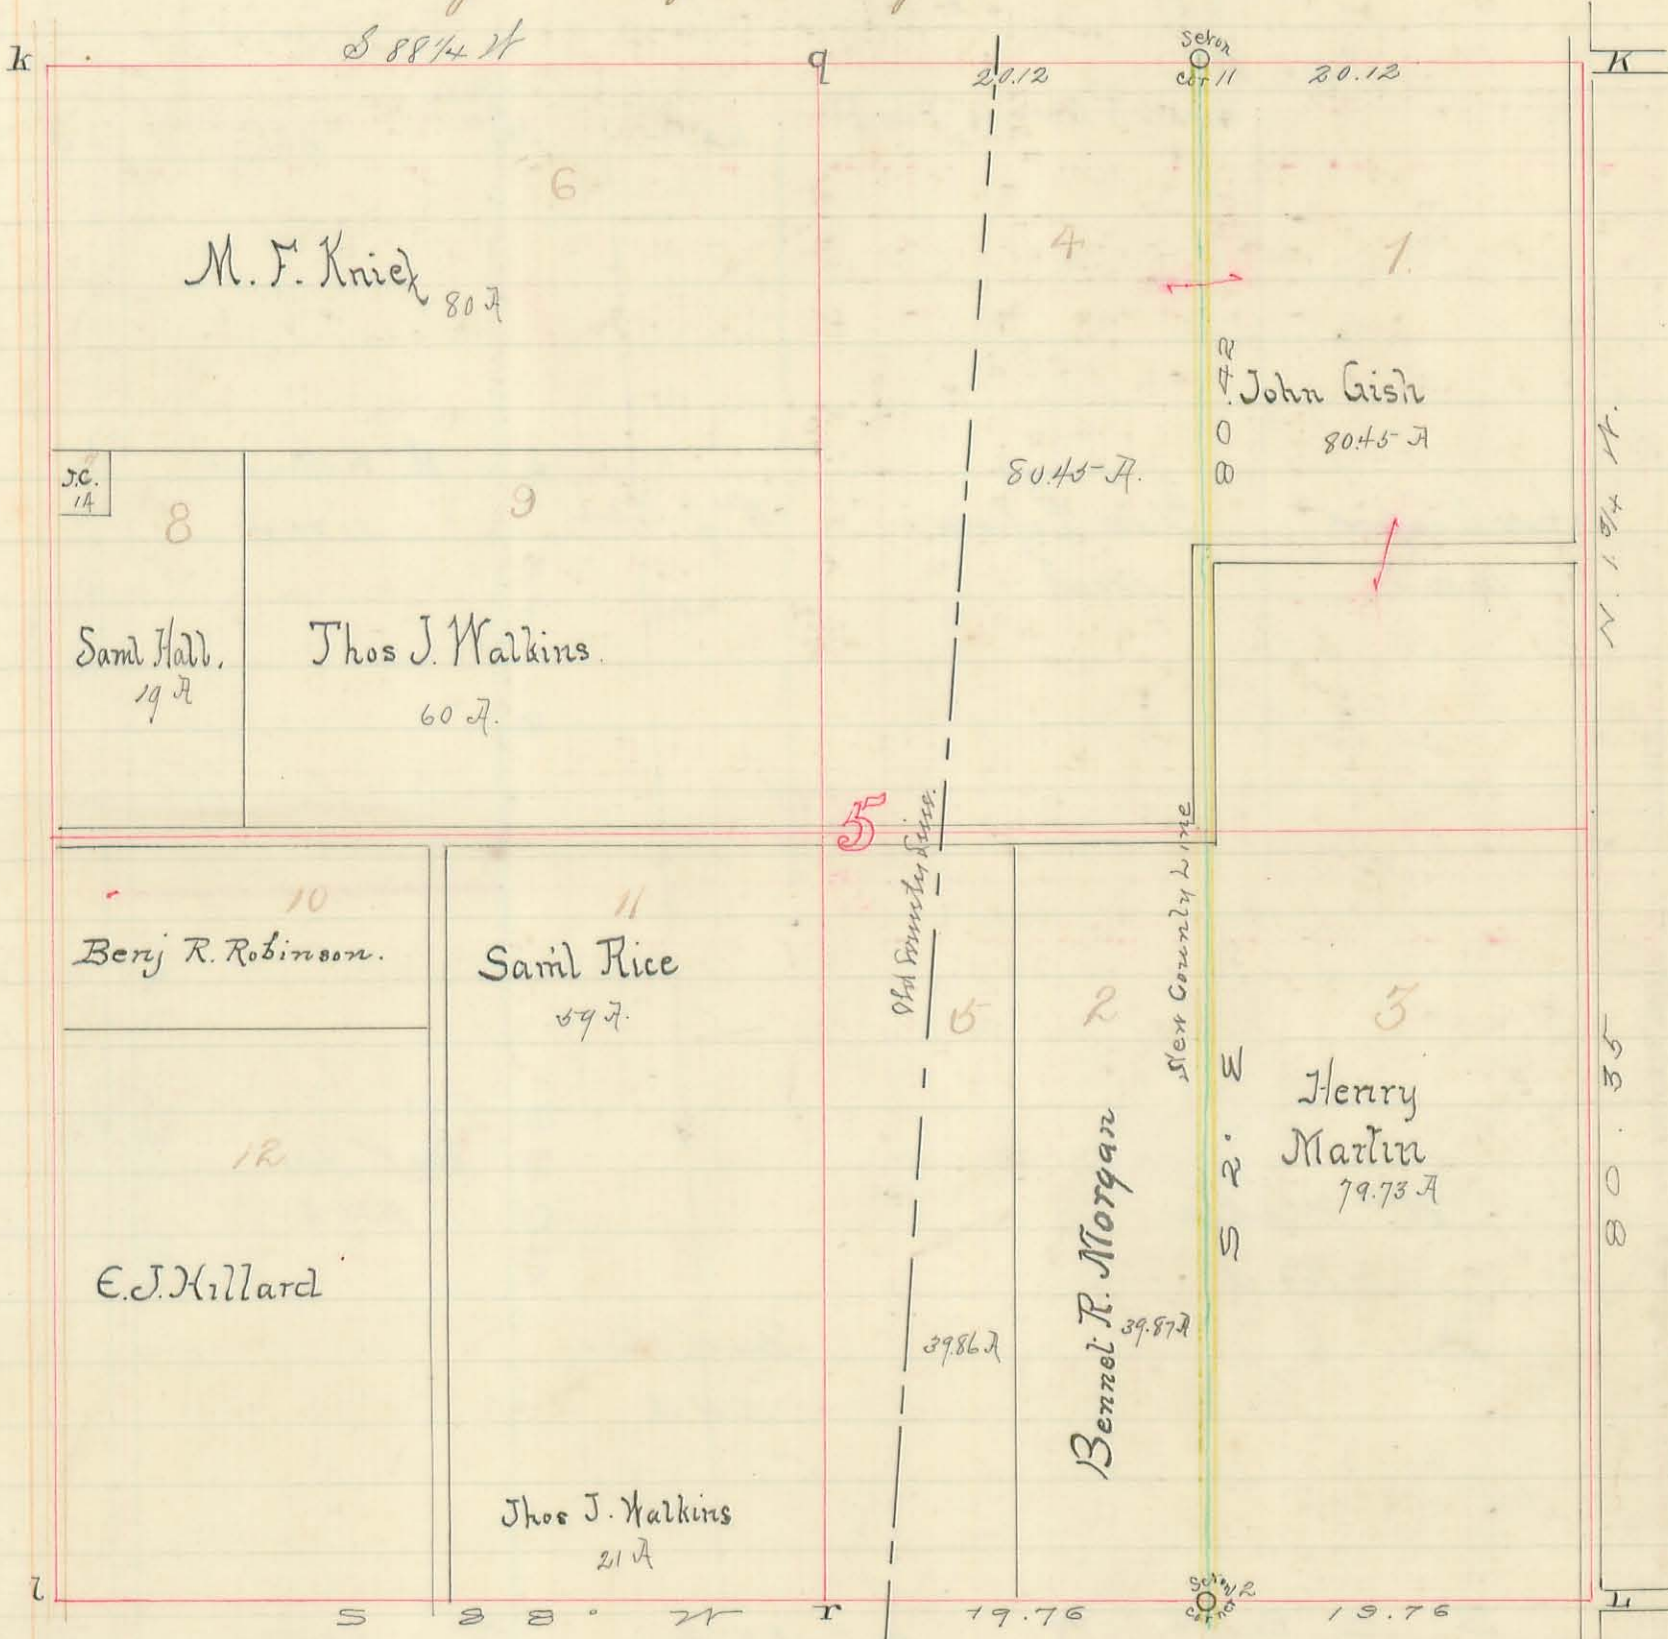 S 88 1/4 W
k
q
20.12
Cor 11
20.12
K
6
4
1.
M. F. Kniek
80 A
80.42
John Gish
80.45 A
80.45 A.
J.C.
1A
8
9
N. 1 3/4 W.
Saml Hall.
19 A
Thos J. Watkins.
60 A.
5
Old County Line.
New County Line
10
11
Benj R. Robinson.
Sam'l Rice
59 A.
5
2
3
S 2. E
Henry
Martin
79.73 A
80.35
12
E.J. Hillard
Bennet R. Morgan
39.86 A
39.87 A
Thos J. Watkins
21 A
l
S 88° W
r
19.76
Corner 2
19.76
L